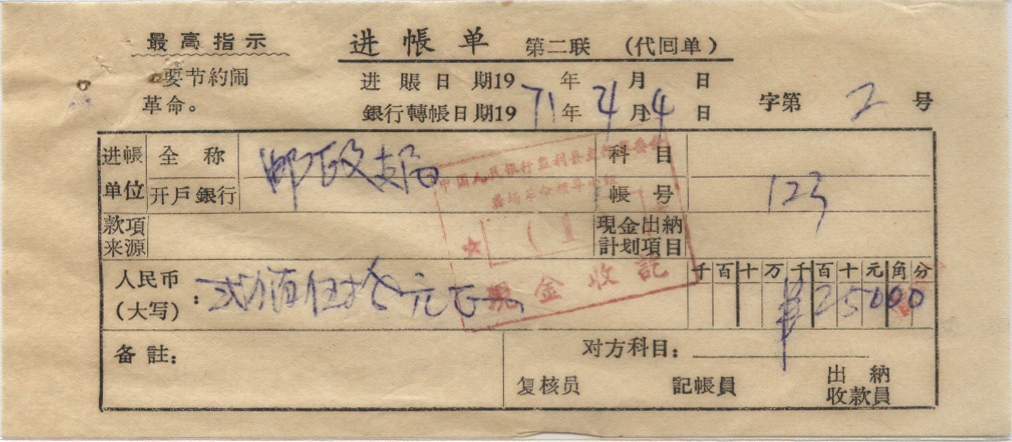 最高指示
要节約闹
革命。
进帳单 第二联 (代回单)
进賬日期19 年 月 日
銀行轉帳日期19 71年 4月 4日
字第 2 号
进帳单位 全称 邮政支局 科目
开戶銀行 帳号 123
款項来源 現金出納計划項目
中国人民银行监利县支行
(1)
現金收記
人民币(大写): 弍佰伍拾元正
千百十万千百十元角分
¥25000
备註: 对方科目:
复核员 記帳員 出納收款員